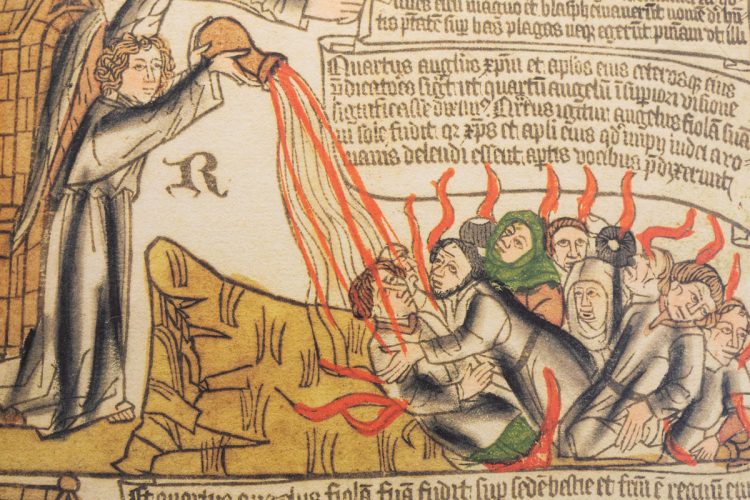 magno et blasphemaverūt nomē dei
tis ptatem sup has plagas neqz egerūt pniam vt ill
Quartus anglus xpm et aplos eius ceterosqz eius
p̄dicatores sigt vt quartū angelū ī supiori visione
significasse diximꝰ igitur angelus fiolā suā
in sole fudit qr xps et apli eius qd impij iudei a ro
manis delendi essent aptis vocibus p̄dixerunt
R
Et quartus angelus fiolā suā fudit sup sedē bestie et ē regnū